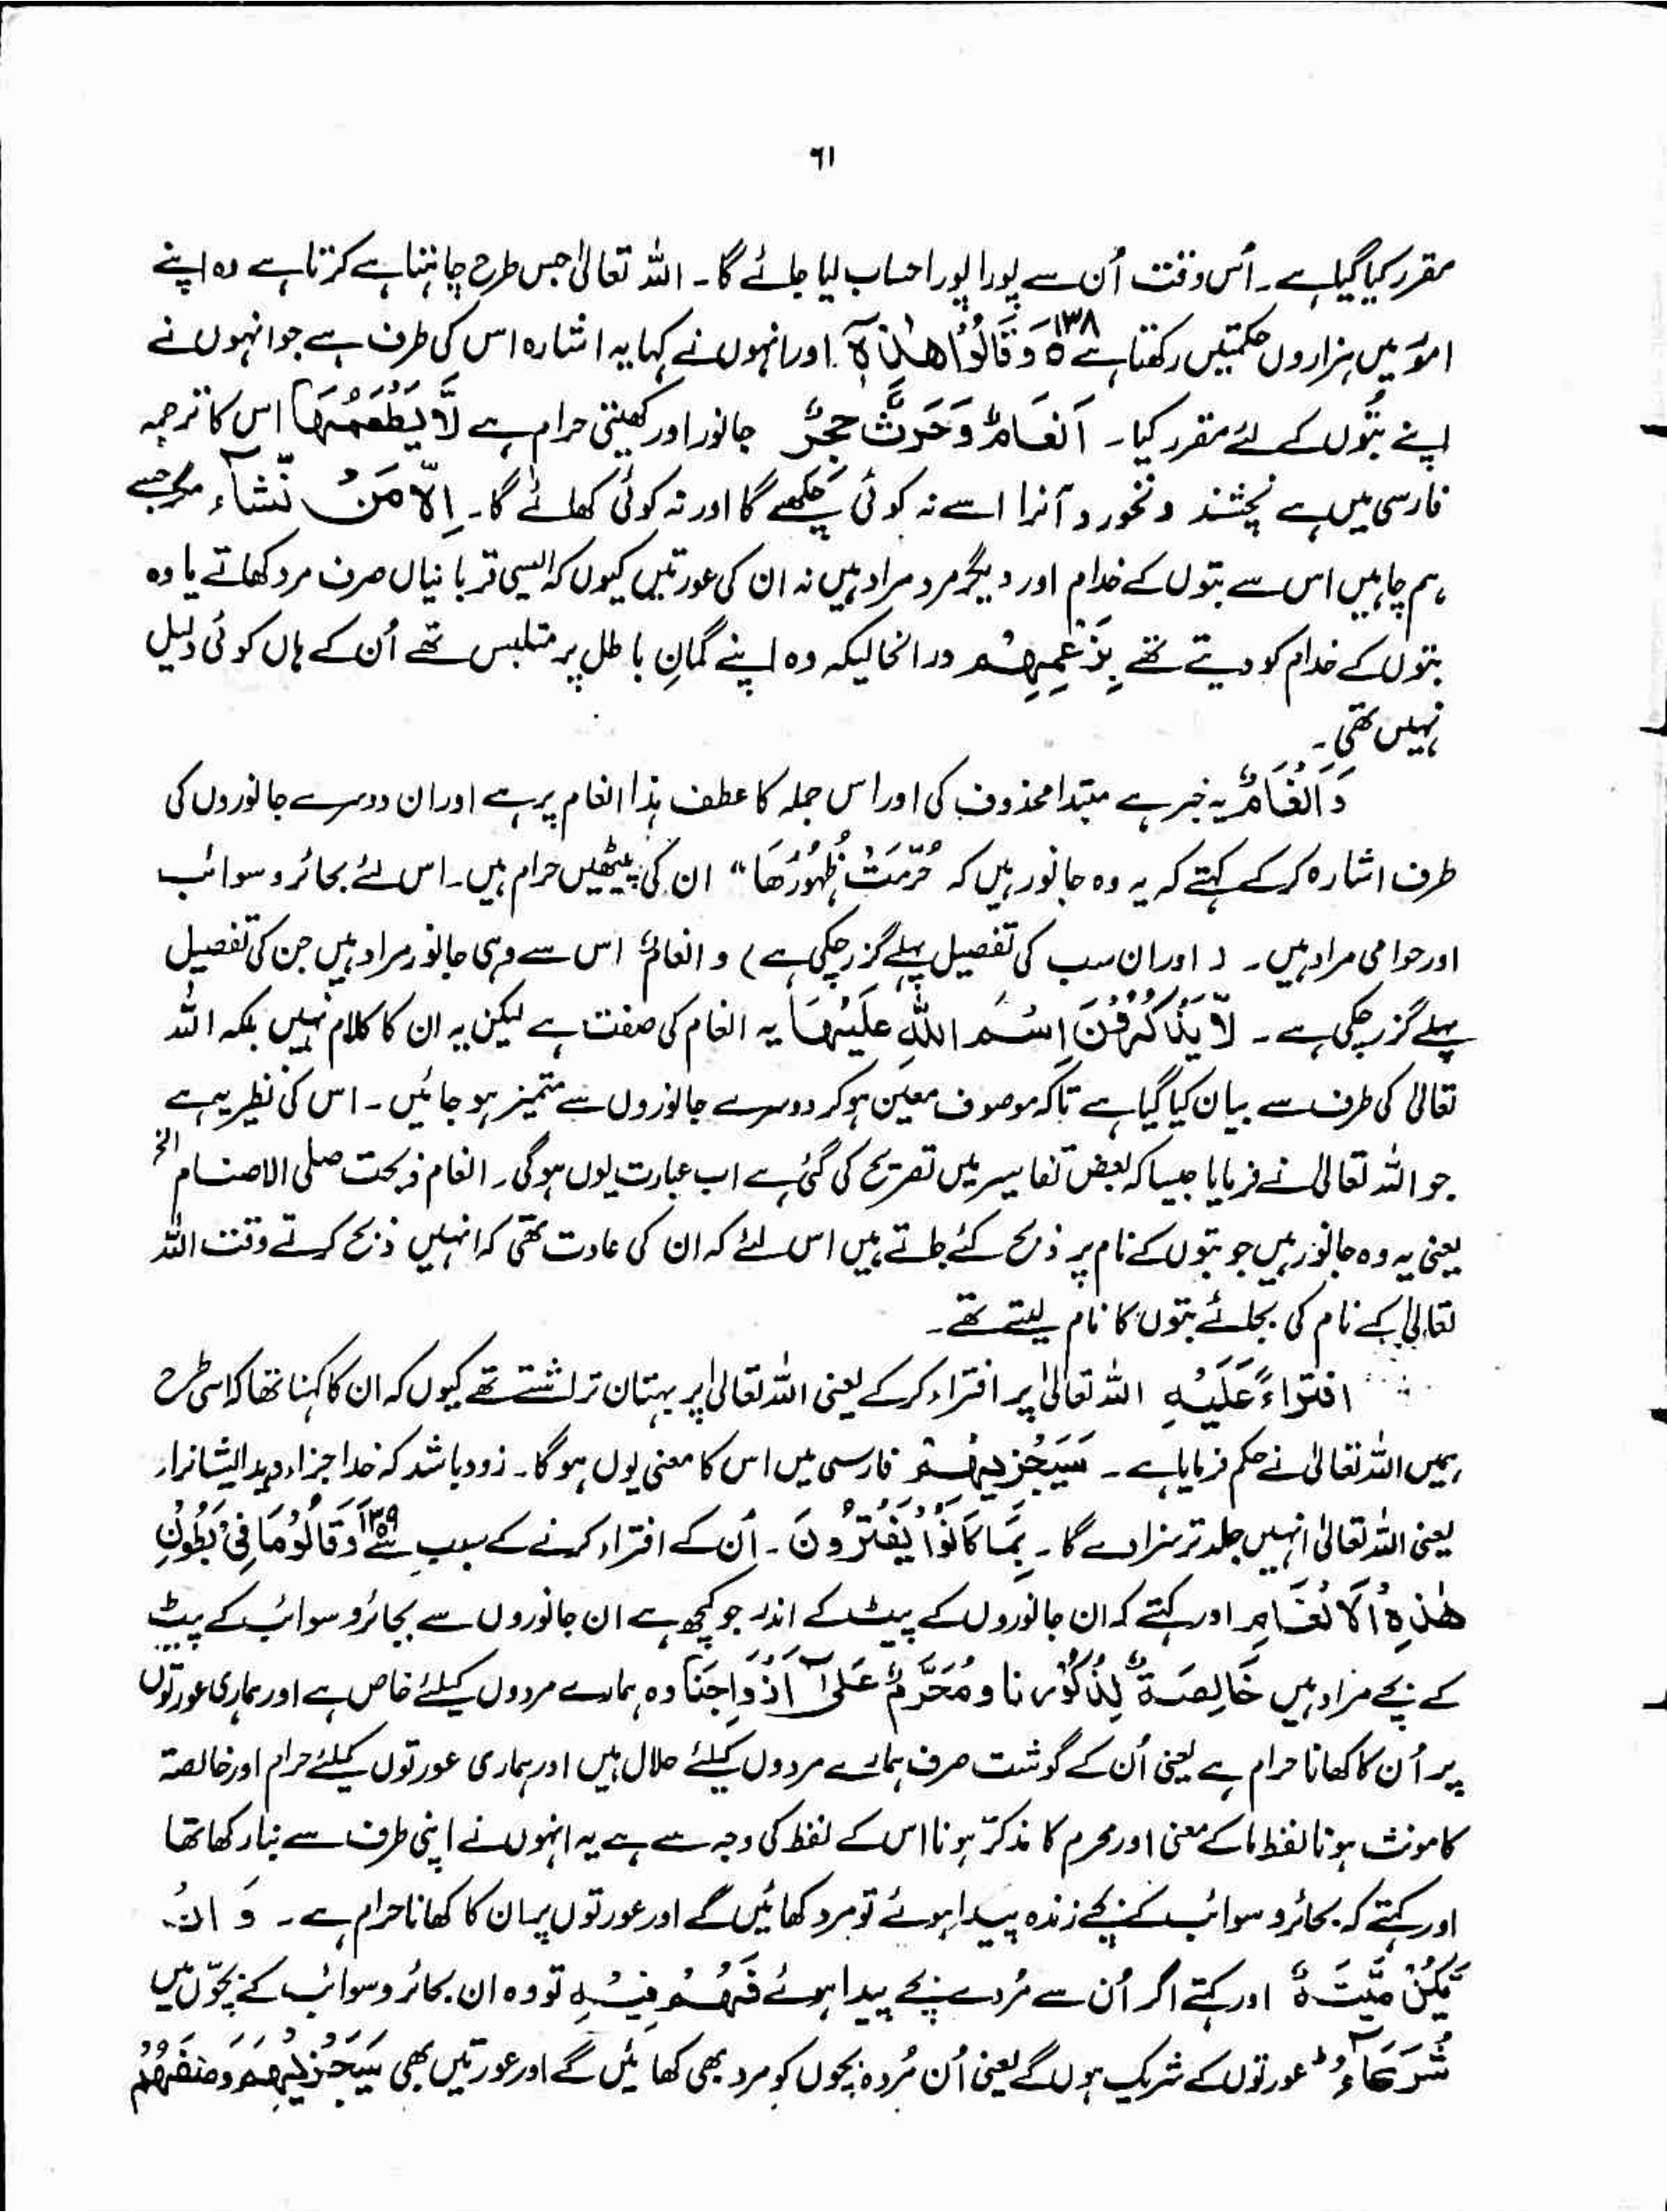 ٦١
مقرر کیا گیا ہے۔ اُس وقت اُن سے پورا پورا حساب لیا جائے گا۔ اللہ تعالیٰ جس طرح چاہتا ہے کرتا ہے وہ اپنے
امور میں ہزاروں حکمتیں رکھتا ہے ۱۳۸ وَقَالُوْا هٰذِهٖٓ اور انہوں نے کہا یہ اشارہ اس کی طرف ہے جو انہوں نے
اپنے بتوں کے لئے مقرر کیا۔ اَنْعَامٌ وَّحَرْثٌ حِجْرٌ جانور اور کھیتی حرام ہے لَّا يَطْعَمُهَا اس کا ترجمہ
فارسی میں ہے نچشند ونخورد آنرا اسے نہ کوئی چکھے گا اور نہ کوئی کھائے گا۔ اِلَّا مَنْ نَّشَآءُ مگر جسے
ہم چاہیں اس سے بتوں کے خدام اور دیگر مرد مراد ہیں نہ ان کی عورتیں کیوں کہ ایسی قربانیاں صرف مرد کھاتے یا وہ
بتوں کے خدام کو دیتے تھے بِزَعْمِهِمْ درانحالیکہ وہ اپنے گمانِ باطل پر متلبس تھے اُن کے ہاں کوئی دلیل
نہیں تھی۔
وَاَنْعَامٌ یہ خبر ہے مبتدا محذوف کی اور اس جملہ کا عطف ہذا انعام پر ہے اور ان دوسرے جانوروں کی
طرف اشارہ کرکے کہتے کہ یہ وہ جانور ہیں کہ حُرِّمَتْ ظُهُوْرُهَا" ان کی پیٹھیں حرام ہیں۔ اس لئے بحائر و سوائب
اور حوامی مراد ہیں۔ (اور ان سب کی تفصیل پہلے گزر چکی ہے) و انعامٌ اس سے وہی جانور مراد ہیں جن کی تفصیل
پہلے گزر چکی ہے۔ لَّا يَذْكُرُوْنَ اسْمَ اللّٰهِ عَلَيْهَا یہ انعام کی صفت ہے لیکن یہ ان کا کلام نہیں بلکہ اللہ
تعالیٰ کی طرف سے بیان کیا گیا ہے تاکہ موصوف معین ہوکر دوسرے جانوروں سے متمیز ہو جائیں۔ اس کی نظیر یہ ہے
جو اللہ تعالیٰ نے فرمایا جیسا کہ بعض تفاسیر میں تصریح کی گئی ہے اب عبارت یوں ہوگی۔ انعام ذبحت صلی الاصنام الخ
یعنی یہ وہ جانور ہیں جو بتوں کے نام پر ذبح کئے جاتے ہیں اس لئے کہ ان کی عادت تھی کہ انہیں ذبح کرتے وقت اللہ
تعالیٰ کے نام کی بجائے بتوں کا نام لیتے تھے۔
افْتِرَاءً عَلَيْهِ اللہ تعالیٰ پر افتراء کرکے یعنی اللہ تعالیٰ پر بہتان تراشتے تھے کیوں کہ ان کا کہنا تھا کہ اسی طرح
ہمیں اللہ تعالیٰ نے حکم فرمایا ہے۔ سَيَجْزِيْهِمْ فارسی میں اس کا معنی یوں ہوگا۔ زود باشد کہ خدا جزاء دہد ایشانرا،
یعنی اللہ تعالیٰ انہیں جلد تر سزا دے گا۔ بِمَا كَانُوْا يَفْتَرُوْنَ۔ اُن کے افتراء کرنے کے سبب سے ۱۳۹ وَقَالُوْا مَا فِيْ بُطُوْنِ
هٰذِهِ الْاَنْعَامِ اور کہتے کہ ان جانوروں کے پیٹ کے اندر جو کچھ ہے ان جانوروں سے بحائر و سوائب کے پیٹ
کے بچے مراد ہیں خَالِصَةٌ لِّذُكُوْرِنَا وَمُحَرَّمٌ عَلٰٓى اَزْوَاجِنَا وہ ہمارے مردوں کیلئے خاص ہے اور ہماری عورتوں
پر اُن کا کھانا حرام ہے یعنی اُن کے گوشت صرف ہمارے مردوں کیلئے حلال ہیں اور ہماری عورتوں کیلئے حرام اور خالصۃ
کا مونث ہونا لفظ ما کے معنی اور محرم کا مذکر ہونا اس کے لفظ کی وجہ سے ہے یہ انہوں نے اپنی طرف سے بنا رکھا تھا
اور کہتے کہ بحائر و سوائب کے بچے زندہ پیدا ہوئے تو مرد کھائیں گے اور عورتوں پر ان کا کھانا حرام ہے۔ وَ اِنْ
يَّكُنْ مَّيْتَةً اور کہتے اگر اُن سے مُردے بچے پیدا ہوئے فَهُمْ فِيْهِ تو وہ ان بحائر و سوائب کے بچوں میں
شُرَكَآءُ عورتوں کے شریک ہوں گے یعنی اُن مُردہ بچوں کو مرد بھی کھائیں گے اور عورتیں بھی سَيَجْزِيْهِمْ وَصْفَهُمْ